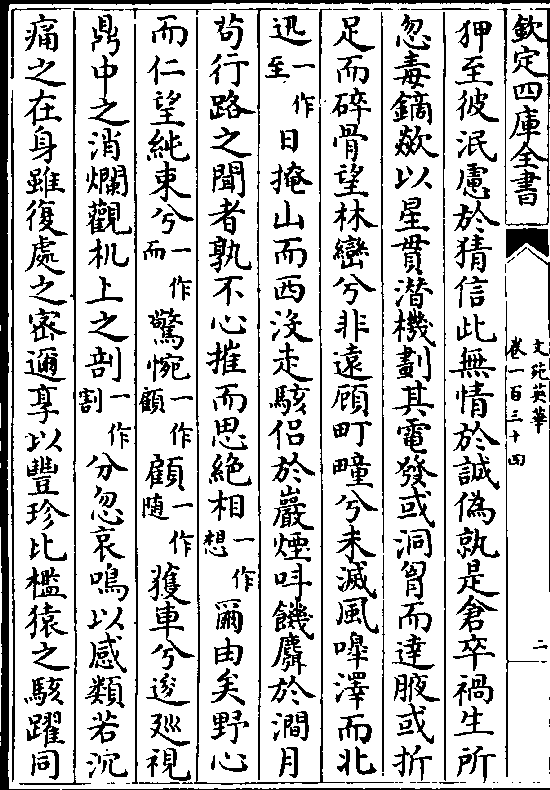 欽定四庫全書
文苑英華
卷一百三十四
二
狎至彼泯慮於猜信此無情於誠偽孰是倉卒禍生所
忽毒鏑歘以星貫潜機劃其電發或洞胷而達腋或折
足而碎骨望林巒兮非遠顧町疃兮未滅風嘷澤而北
迅一作至日掩山而西没走駭侣於巖煙叫饑麛於澗月
苟行路之聞者孰不心摧而思絶相一作想爾由矣野心
而仁望純束兮一作而驚惋一作顧顧一作随獲車兮逡廵視
鼎中之消爛觀机上之剖一作割分忽哀鳴以感類若沉
痛之在身雖復處之宻邇享以豐珍比檻猿之駭躍同